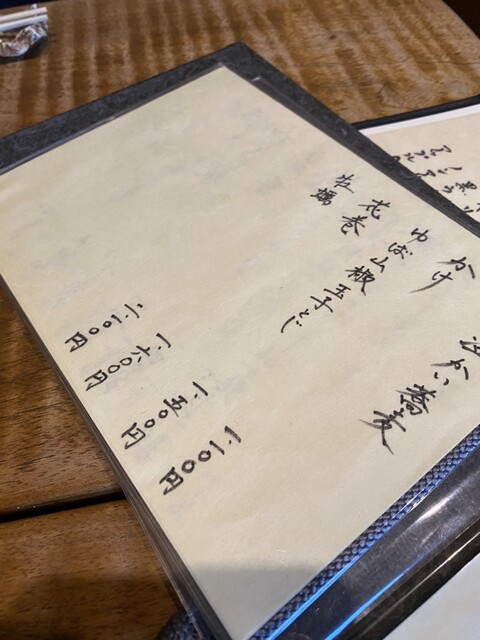 温かい蕎麦
かけ 一、一〇〇円
ゆば山椒玉子とじ 一、五〇〇円
花巻 一、六〇〇円
牡蠣 二、一〇〇円